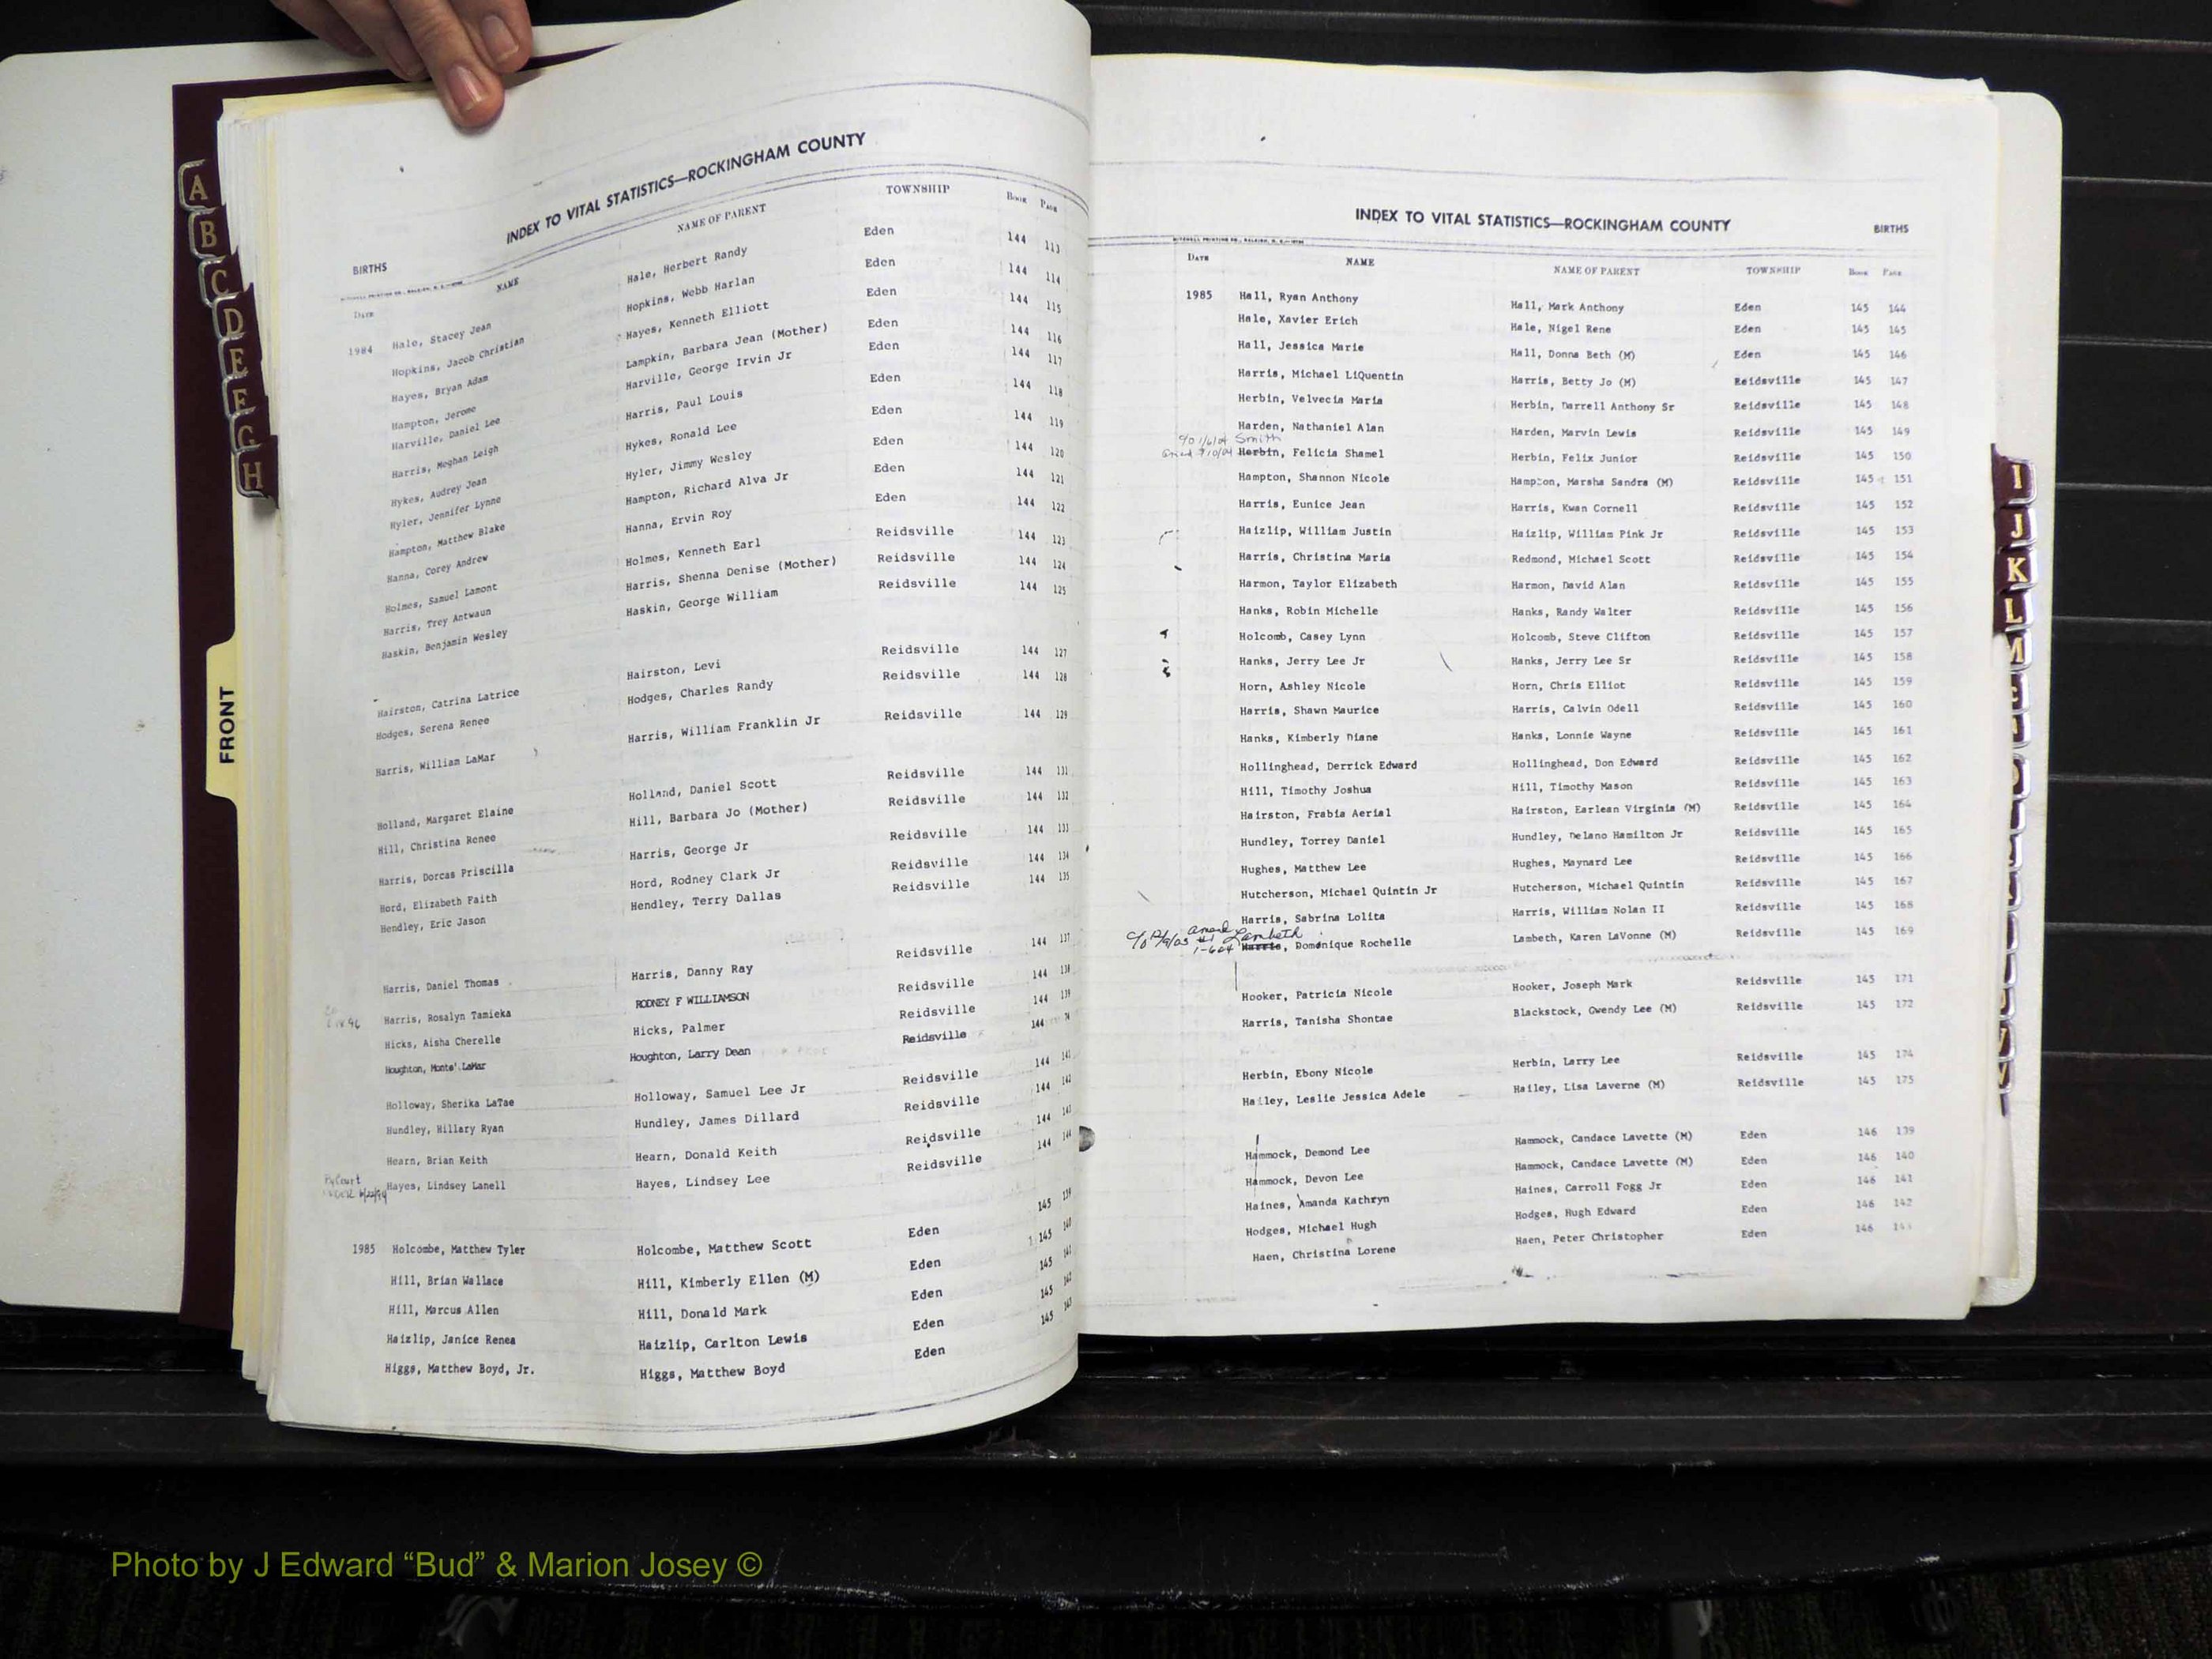 A
B
C
D
E
F
G
H
FRONT
INDEX TO VITAL STATISTICS—ROCKINGHAM COUNTY
BIRTHS
NAME NAME OF PARENT TOWNSHIP BOOK PAGE
DATE
1984 Hale, Stacey Jean Hale, Herbert Randy Eden 144 113
Hopkins, Jacob Christian Hopkins, Webb Harlan Eden 144 114
Hayes, Bryan Adam Hayes, Kenneth Elliott Eden 144 115
Hampton, Jerome Lampkin, Barbara Jean (Mother) Eden 144 116
Harville, Daniel Lee Harville, George Irvin Jr Eden 144 117
Harris, Meghan Leigh Harris, Paul Louis Eden 144 118
Hykes, Audrey Jean Hykes, Ronald Lee Eden 144 119
Hyler, Jennifer Lynne Hyler, Jimmy Wesley Eden 144 120
Hampton, Matthew Blake Hampton, Richard Alva Jr Eden 144 121
Hanna, Corey Andrew Hanna, Ervin Roy Eden 144 122
Holmes, Samuel Lamont Holmes, Kenneth Earl Reidsville 144 123
Harris, Trey Antwaun Harris, Shenna Denise (Mother) Reidsville 144 124
Haskin, Benjamin Wesley Haskin, George William Reidsville 144 125
Hairston, Catrina Latrice Hairston, Levi Reidsville 144 127
Hodges, Serena Renee Hodges, Charles Randy Reidsville 144 128
Harris, William LaMar Harris, William Franklin Jr Reidsville 144 129
Holland, Margaret Elaine Holland, Daniel Scott Reidsville 144 131
Hill, Christina Renee Hill, Barbara Jo (Mother) Reidsville 144 132
Harris, Dorcas Priscilla Harris, George Jr Reidsville 144 133
Hord, Elizabeth Faith Hord, Rodney Clark Jr Reidsville 144 134
Hendley, Eric Jason Hendley, Terry Dallas Reidsville 144 135
Harris, Daniel Thomas Harris, Danny Ray Reidsville 144 137
Harris, Rosalyn Tamieka RODNEY F WILLIAMSON Reidsville 144 138
Hicks, Aisha Cherelle Hicks, Palmer Reidsville 144 139
Houghton, Monte' LaMar Houghton, Larry Dean Reidsville 144
Holloway, Sherika LaTae Holloway, Samuel Lee Jr Reidsville 144 141
Hundley, Hillary Ryan Hundley, James Dillard Reidsville 144 142
Hearn, Brian Keith Hearn, Donald Keith Reidsville 144 143
By Court Hayes, Lindsey Lanell Hayes, Lindsey Lee Reidsville 144 144
1985 Holcombe, Matthew Tyler Holcombe, Matthew Scott Eden 145 139
Hill, Brian Wallace Hill, Kimberly Ellen (M) Eden 145 140
Hill, Marcus Allen Hill, Donald Mark Eden 145 141
Haizlip, Janice Renea Haizlip, Carlton Lewis Eden 145 142
Higgs, Matthew Boyd, Jr. Higgs, Matthew Boyd Eden 145 143
INDEX TO VITAL STATISTICS—ROCKINGHAM COUNTY BIRTHS
DATE NAME NAME OF PARENT TOWNSHIP BOOK PAGE
1985 Hall, Ryan Anthony Hall, Mark Anthony Eden 145 144
Hale, Xavier Erich Hale, Nigel Rene Eden 145 145
Hall, Jessica Marie Hall, Donna Beth (M) Eden 145 146
Harris, Michael LiQuentin Harris, Betty Jo (M) Reidsville 145 147
Herbin, Velvecia Maria Herbin, Darrell Anthony Sr Reidsville 145 148
Harden, Nathaniel Alan Harden, Marvin Lewis Reidsville 145 149
Smith
Herbin, Felicia Shamel Herbin, Felix Junior Reidsville 145 150
Hampton, Shannon Nicole Hampton, Marsha Sandra (M) Reidsville 145 151
Harris, Eunice Jean Harris, Kwan Cornell Reidsville 145 152
Haizlip, William Justin Haizlip, William Pink Jr Reidsville 145 153
Harris, Christina Maria Redmond, Michael Scott Reidsville 145 154
Harmon, Taylor Elizabeth Harmon, David Alan Reidsville 145 155
Hanks, Robin Michelle Hanks, Randy Walter Reidsville 145 156
Holcomb, Casey Lynn Holcomb, Steve Clifton Reidsville 145 157
Hanks, Jerry Lee Jr Hanks, Jerry Lee Sr Reidsville 145 158
Horn, Ashley Nicole Horn, Chris Elliot Reidsville 145 159
Harris, Shawn Maurice Harris, Calvin Odell Reidsville 145 160
Hanks, Kimberly Diane Hanks, Lonnie Wayne Reidsville 145 161
Hollinghead, Derrick Edward Hollinghead, Don Edward Reidsville 145 162
Hill, Timothy Joshua Hill, Timothy Mason Reidsville 145 163
Hairston, Frabia Aerial Hairston, Earlean Virginia (M) Reidsville 145 164
Hundley, Torrey Daniel Hundley, Delano Hamilton Jr Reidsville 145 165
Hughes, Matthew Lee Hughes, Maynard Lee Reidsville 145 166
Hutcherson, Michael Quintin Jr Hutcherson, Michael Quintin Reidsville 145 167
Harris, Sabrina Lolita Harris, William Nolan II Reidsville 145 168
Lambeth
Harris, Domonique Rochelle Lambeth, Karen LaVonne (M) Reidsville 145 169
Hooker, Patricia Nicole Hooker, Joseph Mark Reidsville 145 171
Harris, Tanisha Shontae Blackstock, Gwendy Lee (M) Reidsville 145 172
Herbin, Ebony Nicole Herbin, Larry Lee Reidsville 145 174
Hailey, Leslie Jessica Adele Hailey, Lisa Laverne (M) Reidsville 145 175
Hammock, Demond Lee Hammock, Candace Lavette (M) Eden 146 139
Hammock, Devon Lee Hammock, Candace Lavette (M) Eden 146 140
Haines, Amanda Kathryn Haines, Carroll Fogg Jr Eden 146 141
Hodges, Michael Hugh Hodges, Hugh Edward Eden 146 142
Haen, Christina Lorene Haen, Peter Christopher Eden 146
I
J
K
L
Photo by J Edward “Bud” & Marion Josey ©